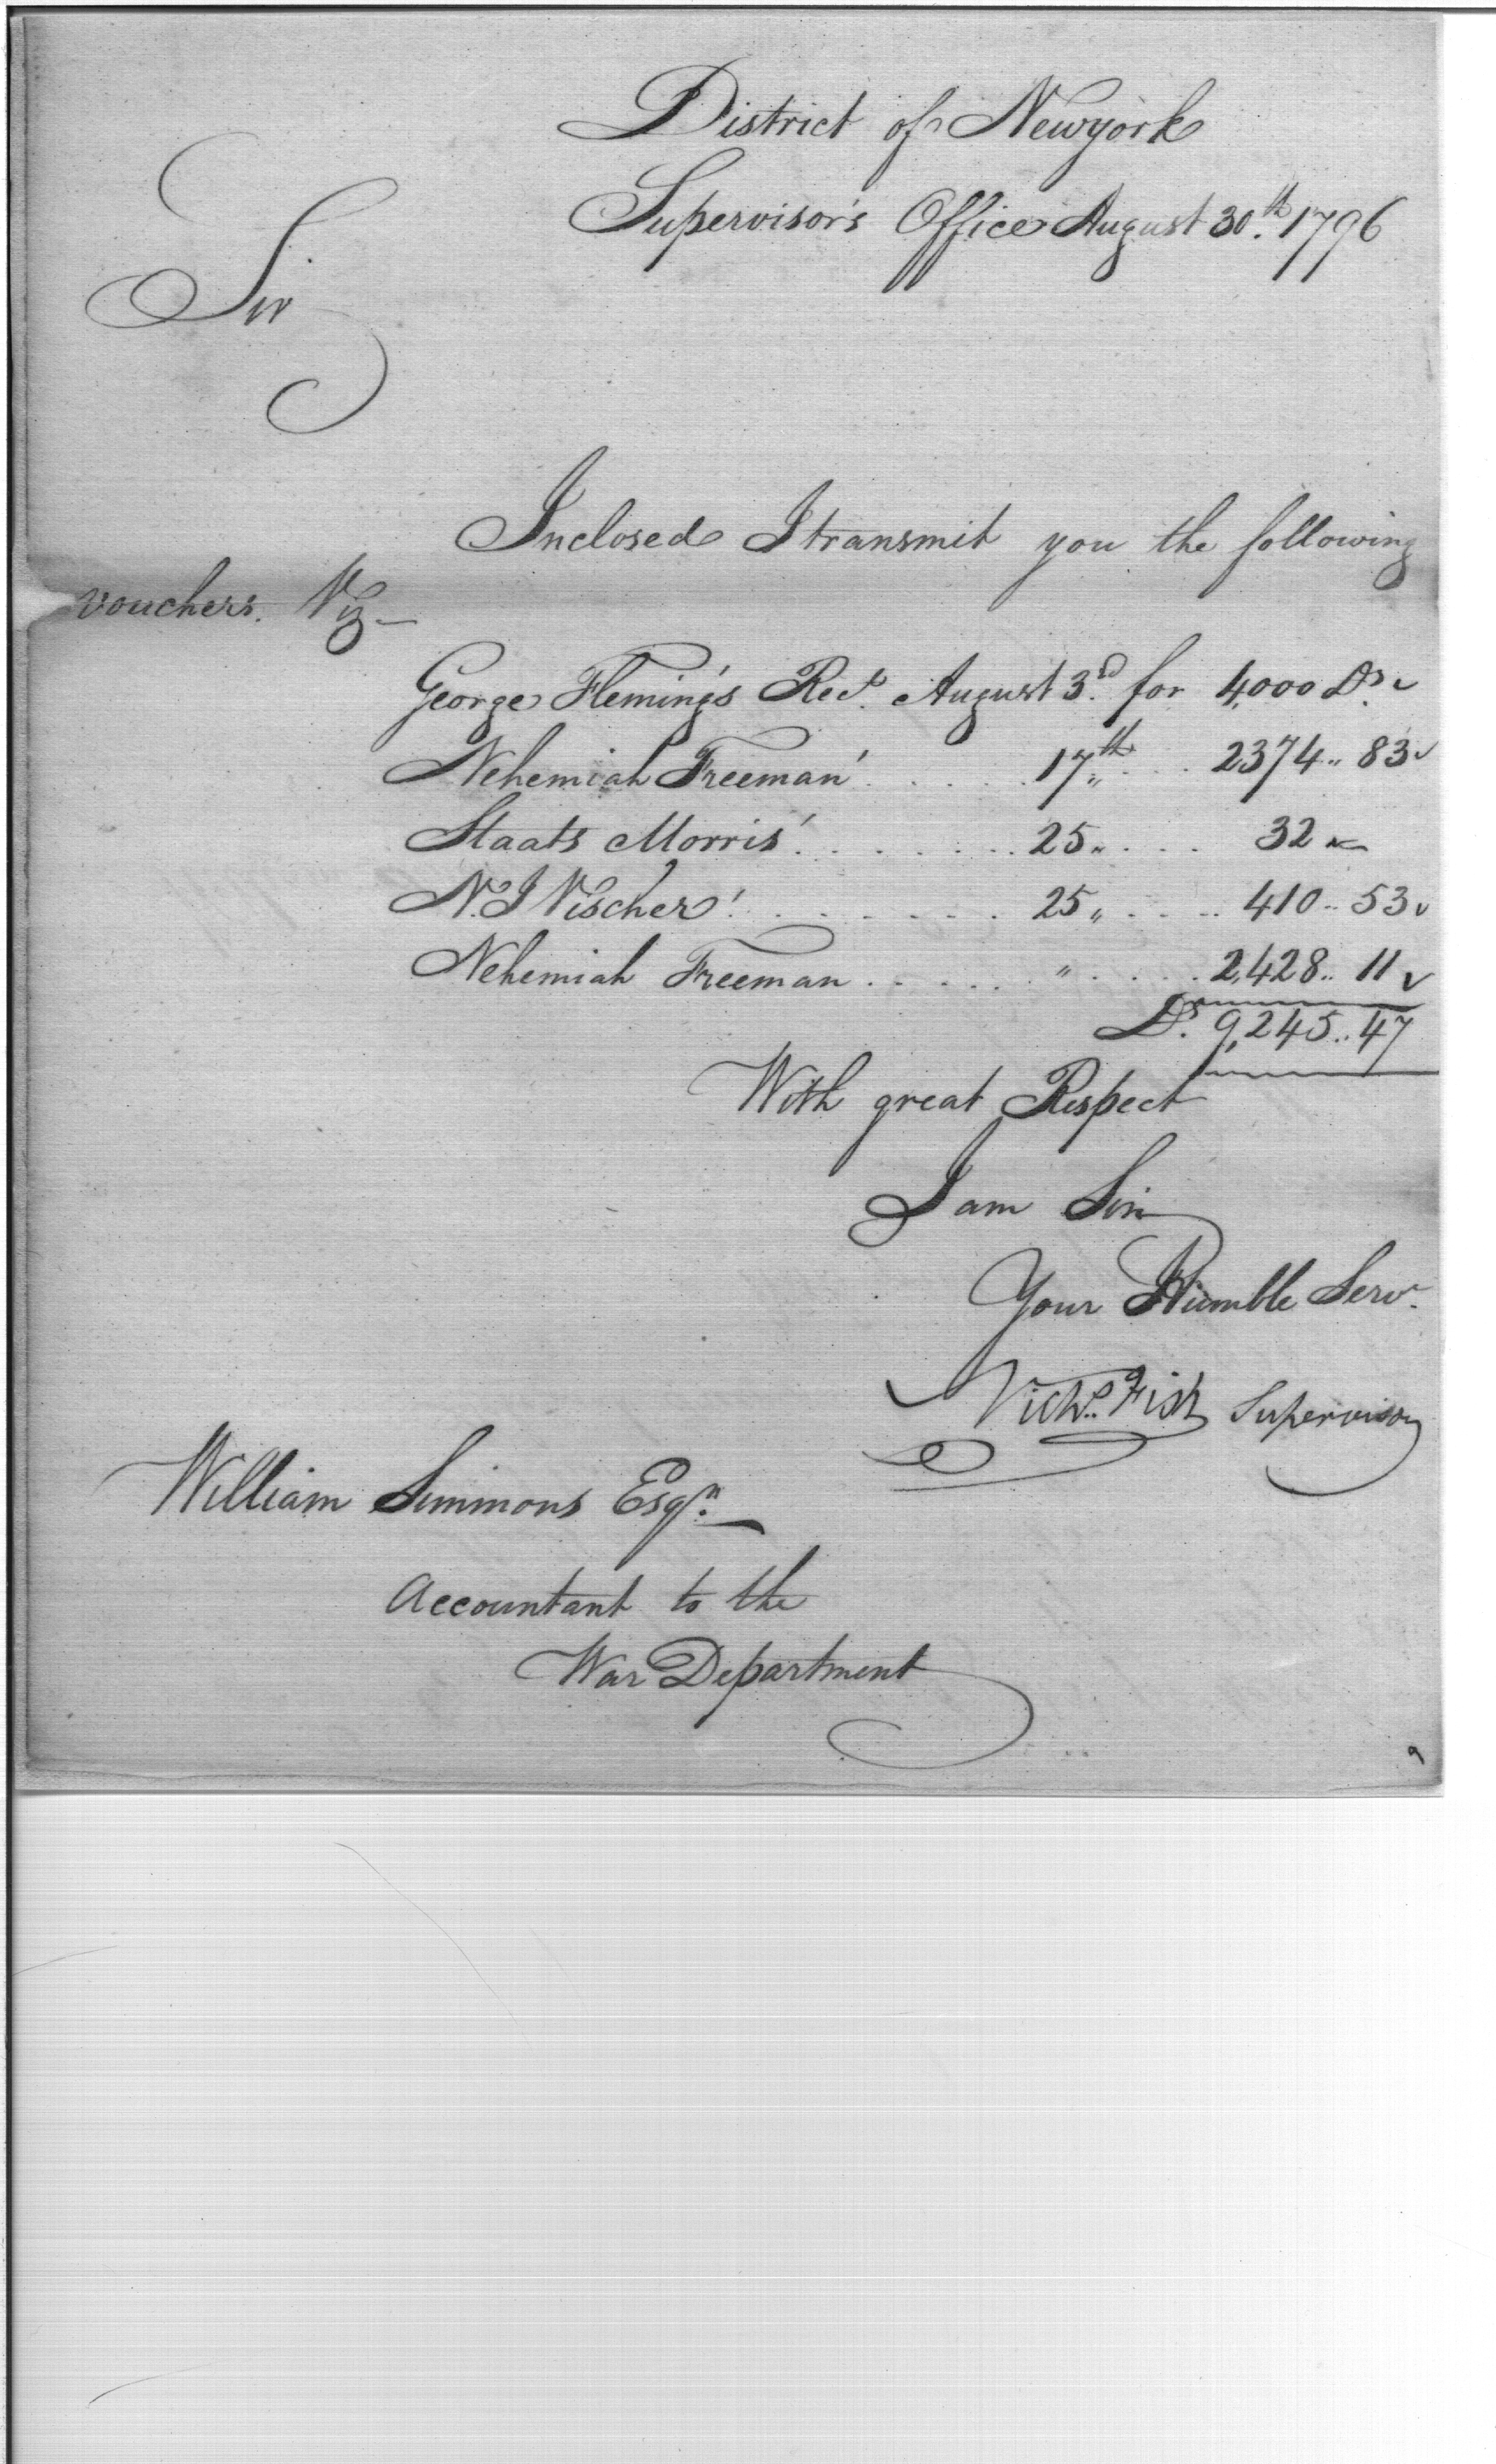 District of Newyork
Supervisor's Office August 30.th 1796
Sir
Inclosed I transmit you the following
vouchers. Viz
George Fleming's Rect. August 3.rd for 4,000 Ds.
Nehemiah Freeman' . . . . . 17th " . . . 2374 .. 83
Staats Morris' . . . . . . . 25 " . . . 32
N. J Vischer' . . . . . . . 25 " . . . 410 .. 53
Nehemiah Freeman . . . . . " . . . . . 2,428 .. 11
Ds. 9,245 .. 47
With great Respect
I am Sir
Your Humble Servt.
Nichs. Fish Supervisor
William Simmons Esqr.
Accountant to the
War Department